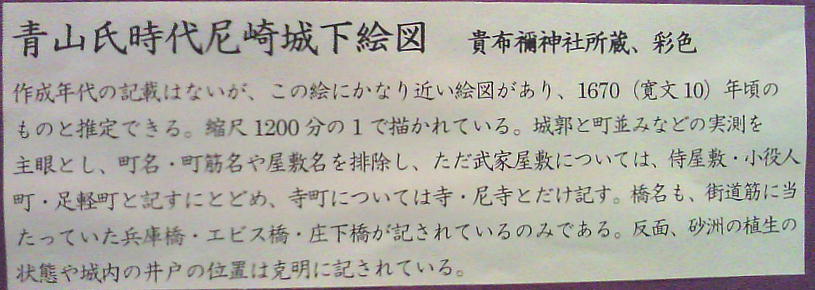 青山氏時代尼崎城下絵図　貴布禰神社所蔵、彩色
作成年代の記載はないが、この絵にかなり近い絵図があり、1670（寛文10）年頃の
ものと推定できる。縮尺1200分の1で描かれている。城郭と町並みなどの実測を
主眼とし、町名・町筋名や屋敷名を排除し、ただ武家屋敷については、侍屋敷・小役人
町・足軽町と記すにとどめ、寺町については寺・尼寺とだけ記す。橋名も、街道筋に当
たっていた兵庫橋・エビス橋・庄下橋が記されているのみである。反面、砂洲の植生の
状態や城内の井戸の位置は克明に記されている。